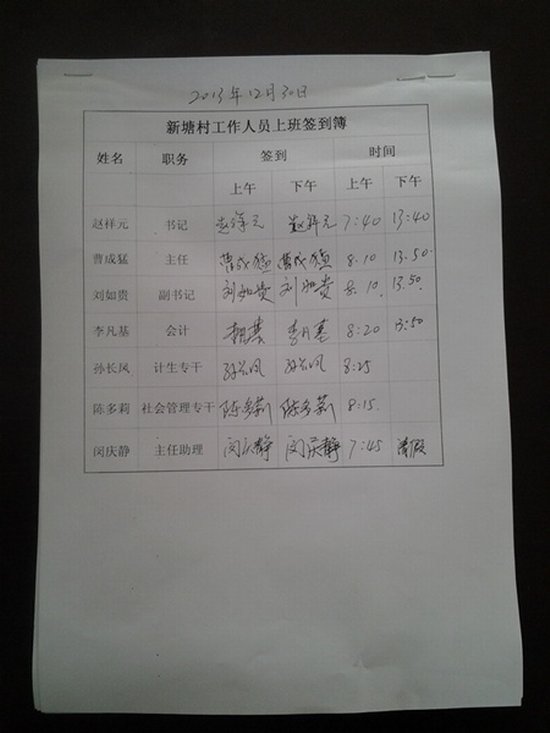 2013年12月30日
新塘村工作人员上班签到簿
姓名 职务 签到 时间
上午 下午 上午 下午
赵祥元 书记 赵祥元 赵祥元 7:40 13:40
曹成猛 主任 曹成猛 曹成猛 8:10 13:50
刘如贵 副书记 刘如贵 刘如贵 8:10 13:50
李凡基 会计 李凡基 8:20 13:50
孙长凤 计生专干 孙长凤 孙长凤 8:25
陈多莉 社会管理专干 陈多莉 陈多莉 8:15
闵庆静 主任助理 闵庆静 闵庆静 7:45 请假